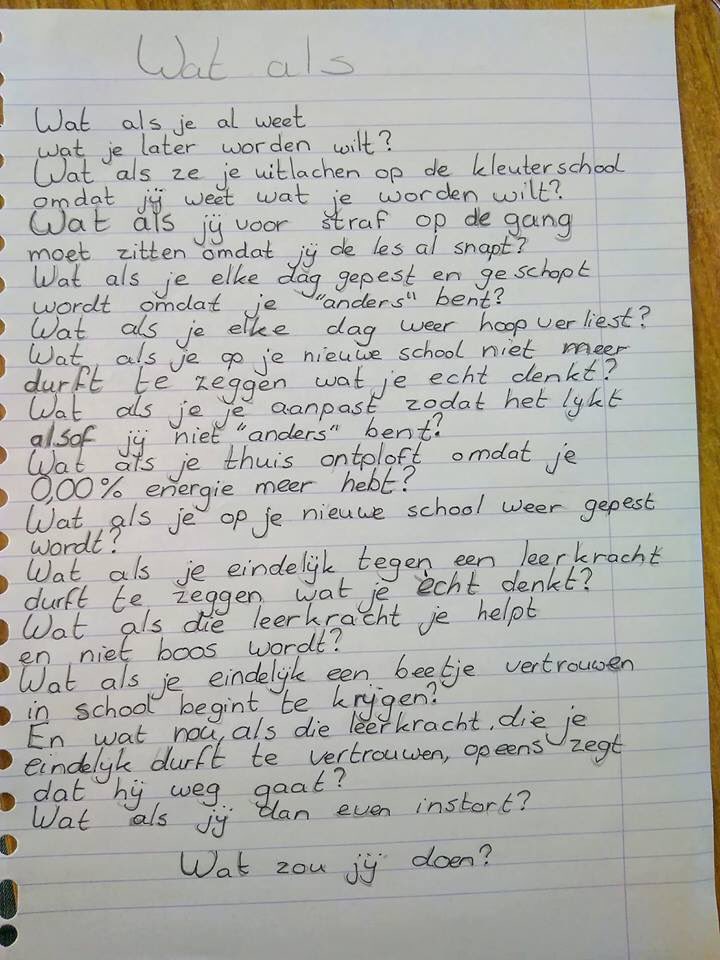 Wat als
Wat als je al weet
wat je later worden wilt?
Wat als ze je uitlachen op de kleuterschool
omdat jij weet wat je worden wilt?
Wat als jij voor straf op de gang
moet zitten omdat jij de les al snapt?
Wat als je elke dag gepest en geschopt
wordt omdat je "anders" bent?
Wat als je elke dag weer hoop verliest?
Wat als je op je nieuwe school niet meer
durft te zeggen wat je echt denkt?
Wat als je je aanpast zodat het lijkt
alsof jij niet "anders" bent?
Wat als je thuis ontploft omdat je
0,00% energie meer hebt?
Wat als je op je nieuwe school weer gepest
wordt?
Wat als je eindelijk tegen een leerkracht
durft te zeggen wat je echt denkt?
Wat als die leerkracht je helpt
en niet boos wordt?
Wat als je eindelijk een beetje vertrouwen
in school begint te krijgen?
En wat nou, als die leerkracht, die je
eindelijk durft te vertrouwen, opeens zegt
dat hij weg gaat?
Wat als jij dan even instort?
Wat zou jij doen?